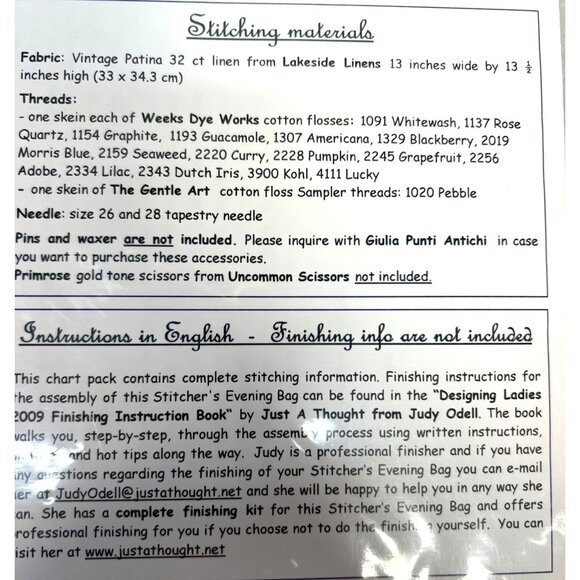 Stitching materials
Fabric: Vintage Patina 32 ct linen from Lakeside Linens 13 inches wide by 13 ½
inches high (33 x 34.3 cm)
Threads:
- one skein each of Weeks Dye Works cotton flosses: 1091 Whitewash, 1137 Rose
Quartz, 1154 Graphite, 1193 Guacamole, 1307 Americana, 1329 Blackberry, 2019
Morris Blue, 2159 Seaweed, 2220 Curry, 2228 Pumpkin, 2245 Grapefruit, 2256
Adobe, 2334 Lilac, 2343 Dutch Iris, 3900 Kohl, 4111 Lucky
- one skein of The Gentle Art cotton floss Sampler threads: 1020 Pebble
Needle: size 26 and 28 tapestry needle
Pins and waxer are not included. Please inquire with Giulia Punti Antichi in case
you want to purchase these accessories.
Primrose gold tone scissors from Uncommon Scissors not included.
Instructions in English - Finishing info are not included
This chart pack contains complete stitching information. Finishing instructions for
the assembly of this Stitcher's Evening Bag can be found in the "Designing Ladies
2009 Finishing Instruction Book" by Just A Thought from Judy Odell. The book
walks you, step-by-step, through the assembly process using written instructions,
and hot tips along the way. Judy is a professional finisher and if you have
any questions regarding the finishing of your Stitcher's Evening Bag you can e-mail
her at JudyOdell@justathought.net and she will be happy to help you in any way she
can. She has a complete finishing kit for this Stitcher's Evening Bag and offers
professional finishing for you if you choose not to do the finishing yourself. You can
visit her at www.justathought.net